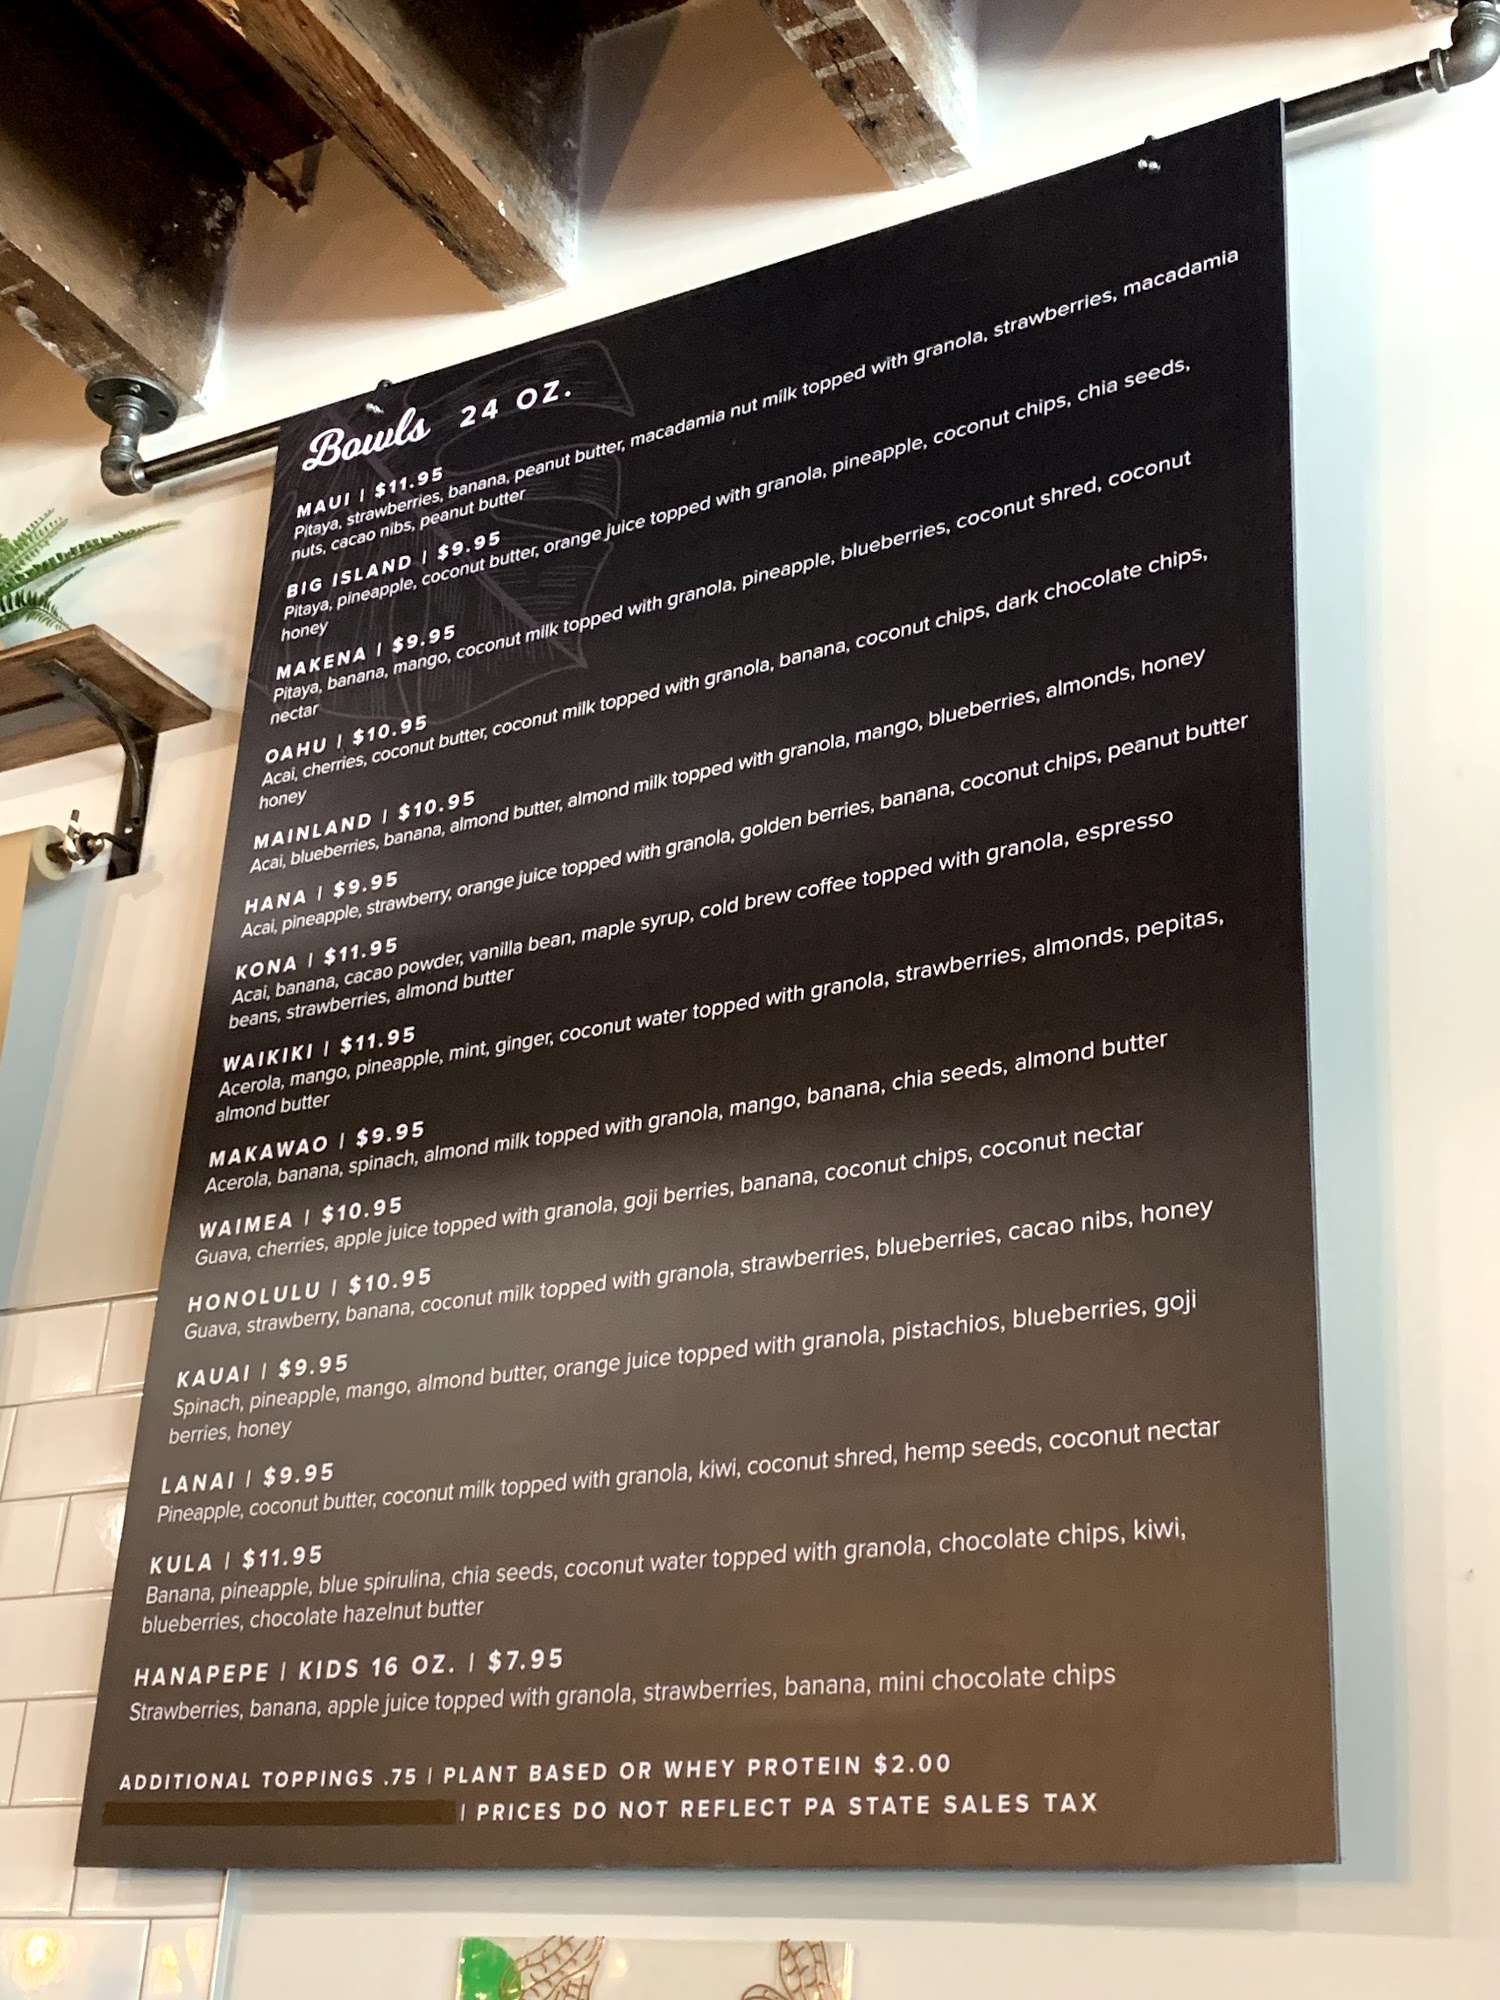 Bowls 24 OZ.
MAUI | $11.95
Pitaya, strawberries, banana, peanut butter, macadamia nut milk topped with granola, strawberries, macadamia
nuts, cacao nibs, peanut butter
BIG ISLAND | $9.95
Pitaya, pineapple, coconut butter, orange juice topped with granola, pineapple, coconut chips, chia seeds,
honey
MAKENA | $9.95
Pitaya, banana, mango, coconut milk topped with granola, pineapple, blueberries, coconut shred, coconut
nectar
OAHU | $10.95
Acai, cherries, coconut butter, coconut milk topped with granola, banana, coconut chips, dark chocolate chips,
honey
MAINLAND | $10.95
Acai, blueberries, banana, almond butter, almond milk topped with granola, mango, blueberries, almonds, honey
HANA | $9.95
Acai, pineapple, strawberry, orange juice topped with granola, golden berries, banana, coconut chips, peanut butter
KONA | $11.95
Acai, banana, cacao powder, vanilla bean, maple syrup, cold brew coffee topped with granola, espresso
beans, strawberries, almond butter
WAIKIKI | $11.95
Acerola, mango, pineapple, mint, ginger, coconut water topped with granola, strawberries, almonds, pepitas,
almond butter
MAKAWAO | $9.95
Acerola, banana, spinach, almond milk topped with granola, mango, banana, chia seeds, almond butter
WAIMEA | $10.95
Guava, cherries, apple juice topped with granola, goji berries, banana, coconut chips, coconut nectar
HONOLULU | $10.95
Guava, strawberry, banana, coconut milk topped with granola, strawberries, blueberries, cacao nibs, honey
KAUAI | $9.95
Spinach, pineapple, mango, almond butter, orange juice topped with granola, pistachios, blueberries, goji
berries, honey
LANAI | $9.95
Pineapple, coconut butter, coconut milk topped with granola, kiwi, coconut shred, hemp seeds, coconut nectar
KULA | $11.95
Banana, pineapple, blue spirulina, chia seeds, coconut water topped with granola, chocolate chips, kiwi,
blueberries, chocolate hazelnut butter
HANAPEPE | KIDS 16 OZ. | $7.95
Strawberries, banana, apple juice topped with granola, strawberries, banana, mini chocolate chips
ADDITIONAL TOPPINGS .75 | PLANT BASED OR WHEY PROTEIN $2.00
| PRICES DO NOT REFLECT PA STATE SALES TAX